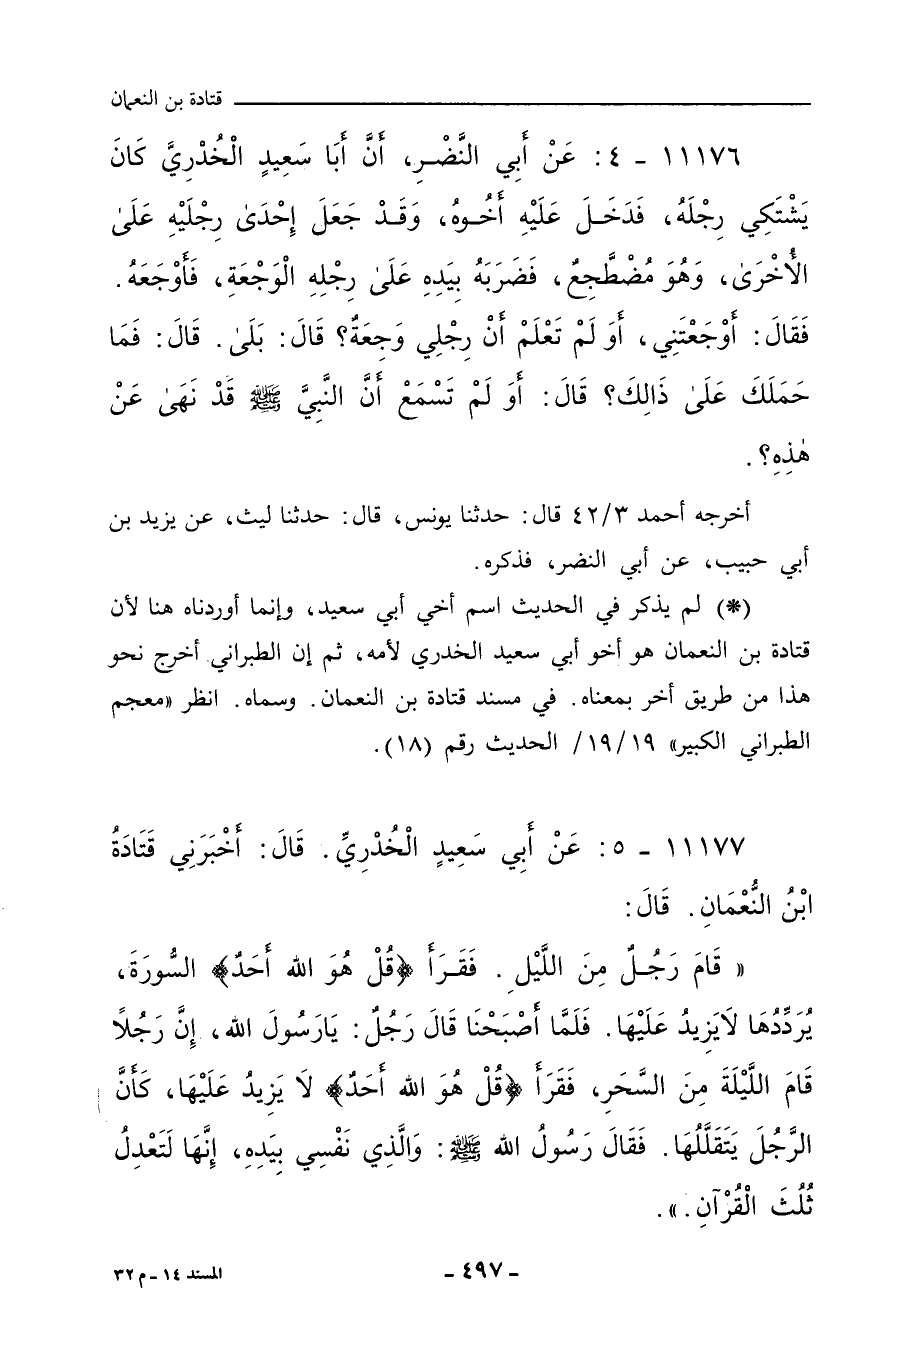 قتادة بن النعمان
١١١٧٦ - ٤: عَنْ أَبِي النَّضْـرِ، أَنَّ أَبَا سَعِيدٍ الْخُدْرِيَّ كَانَ
يَشْتَكِي رِجْلَهُ، فَدَخَـلَ عَلَيْهِ أَخُـوهُ، وَقَـدْ جَعَلَ إِحْدَىٰ رِجْلَيْهِ عَلَىٰ
الأُخْرَىٰ، وَهُوَ مُضْطَجِعٌ، فَضَرَبَهُ بِيَدِهِ عَلَىٰ رِجْلِهِ الْوَجْعَةِ، فَأَوْجَعَهُ.
فَقَالَ: أَوْجَعْتَنِي، أَوَ لَمْ تَعْلَمْ أَنْ رِجْلِي وَجِعَةٌ؟ قَالَ: بَلَىٰ. قَالَ: فَمَا
حَمَلَكَ عَلَىٰ ذَالِكَ؟ قَالَ: أَوَ لَمْ تَسْمَعْ أَنَّ النَّبِيَّ ﷺ قَدْ نَهَىٰ عَنْ
هٰذِهِ؟.
أخرجه أحمد ٤٢/٣ قال: حدثنا يونس، قال: حدثنا ليث، عن يزيد بن
أبي حبيب، عن أبي النضر، فذكره.
(*) لم يذكر في الحديث اسم أخي أبي سعيد، وإنما أوردناه هنا لأن
قتادة بن النعمان هو أخو أبي سعيد الخدري لأمه، ثم إن الطبراني أخرج نحو
هذا من طريق أخر بمعناه. في مسند قتادة بن النعمان. وسماه. انظر «معجم
الطبراني الكبير» ١٩/١٩/ الحديث رقم (١٨).
١١١٧٧ - ٥: عَنْ أَبِي سَعِيدٍ الْخُدْرِيِّ. قَالَ: أَخْبَرَنِي قَتَادَةُ
ابْنُ النُّعْمَانِ. قَالَ:
« قَامَ رَجُـلٌ مِنَ اللَّيْلِ. فَقَـرَأَ ﴿قُلْ هُوَ الله أَحَدٌ﴾ السُّورَةَ،
يُرَدِّدُهَا لَايَزِيدُ عَلَيْهَا. فَلَمَّا أَصْبَحْنَا قَالَ رَجُلٌ: يَارَسُولَ الله، إِنَّ رَجُلاً
قَامَ اللَّيْلَةَ مِنَ السَّحَرِ، فَقَرَأَ ﴿قُلْ هُوَ الله أَحَدٌ﴾ لَا يَزِيدُ عَلَيْهَا، كَأَنَّ
الرَّجُلَ يَتَقَلَّلُهَا. فَقَالَ رَسُولُ الله ﷺ: وَالَّذِي نَفْسِي بِيَدِهِ، إِنَّهَا لَتَعْدِلُ
ثُلُثَ الْقُرْآنِ.».
- ٤٩٧ -
المسند ١٤ - م ٣٢